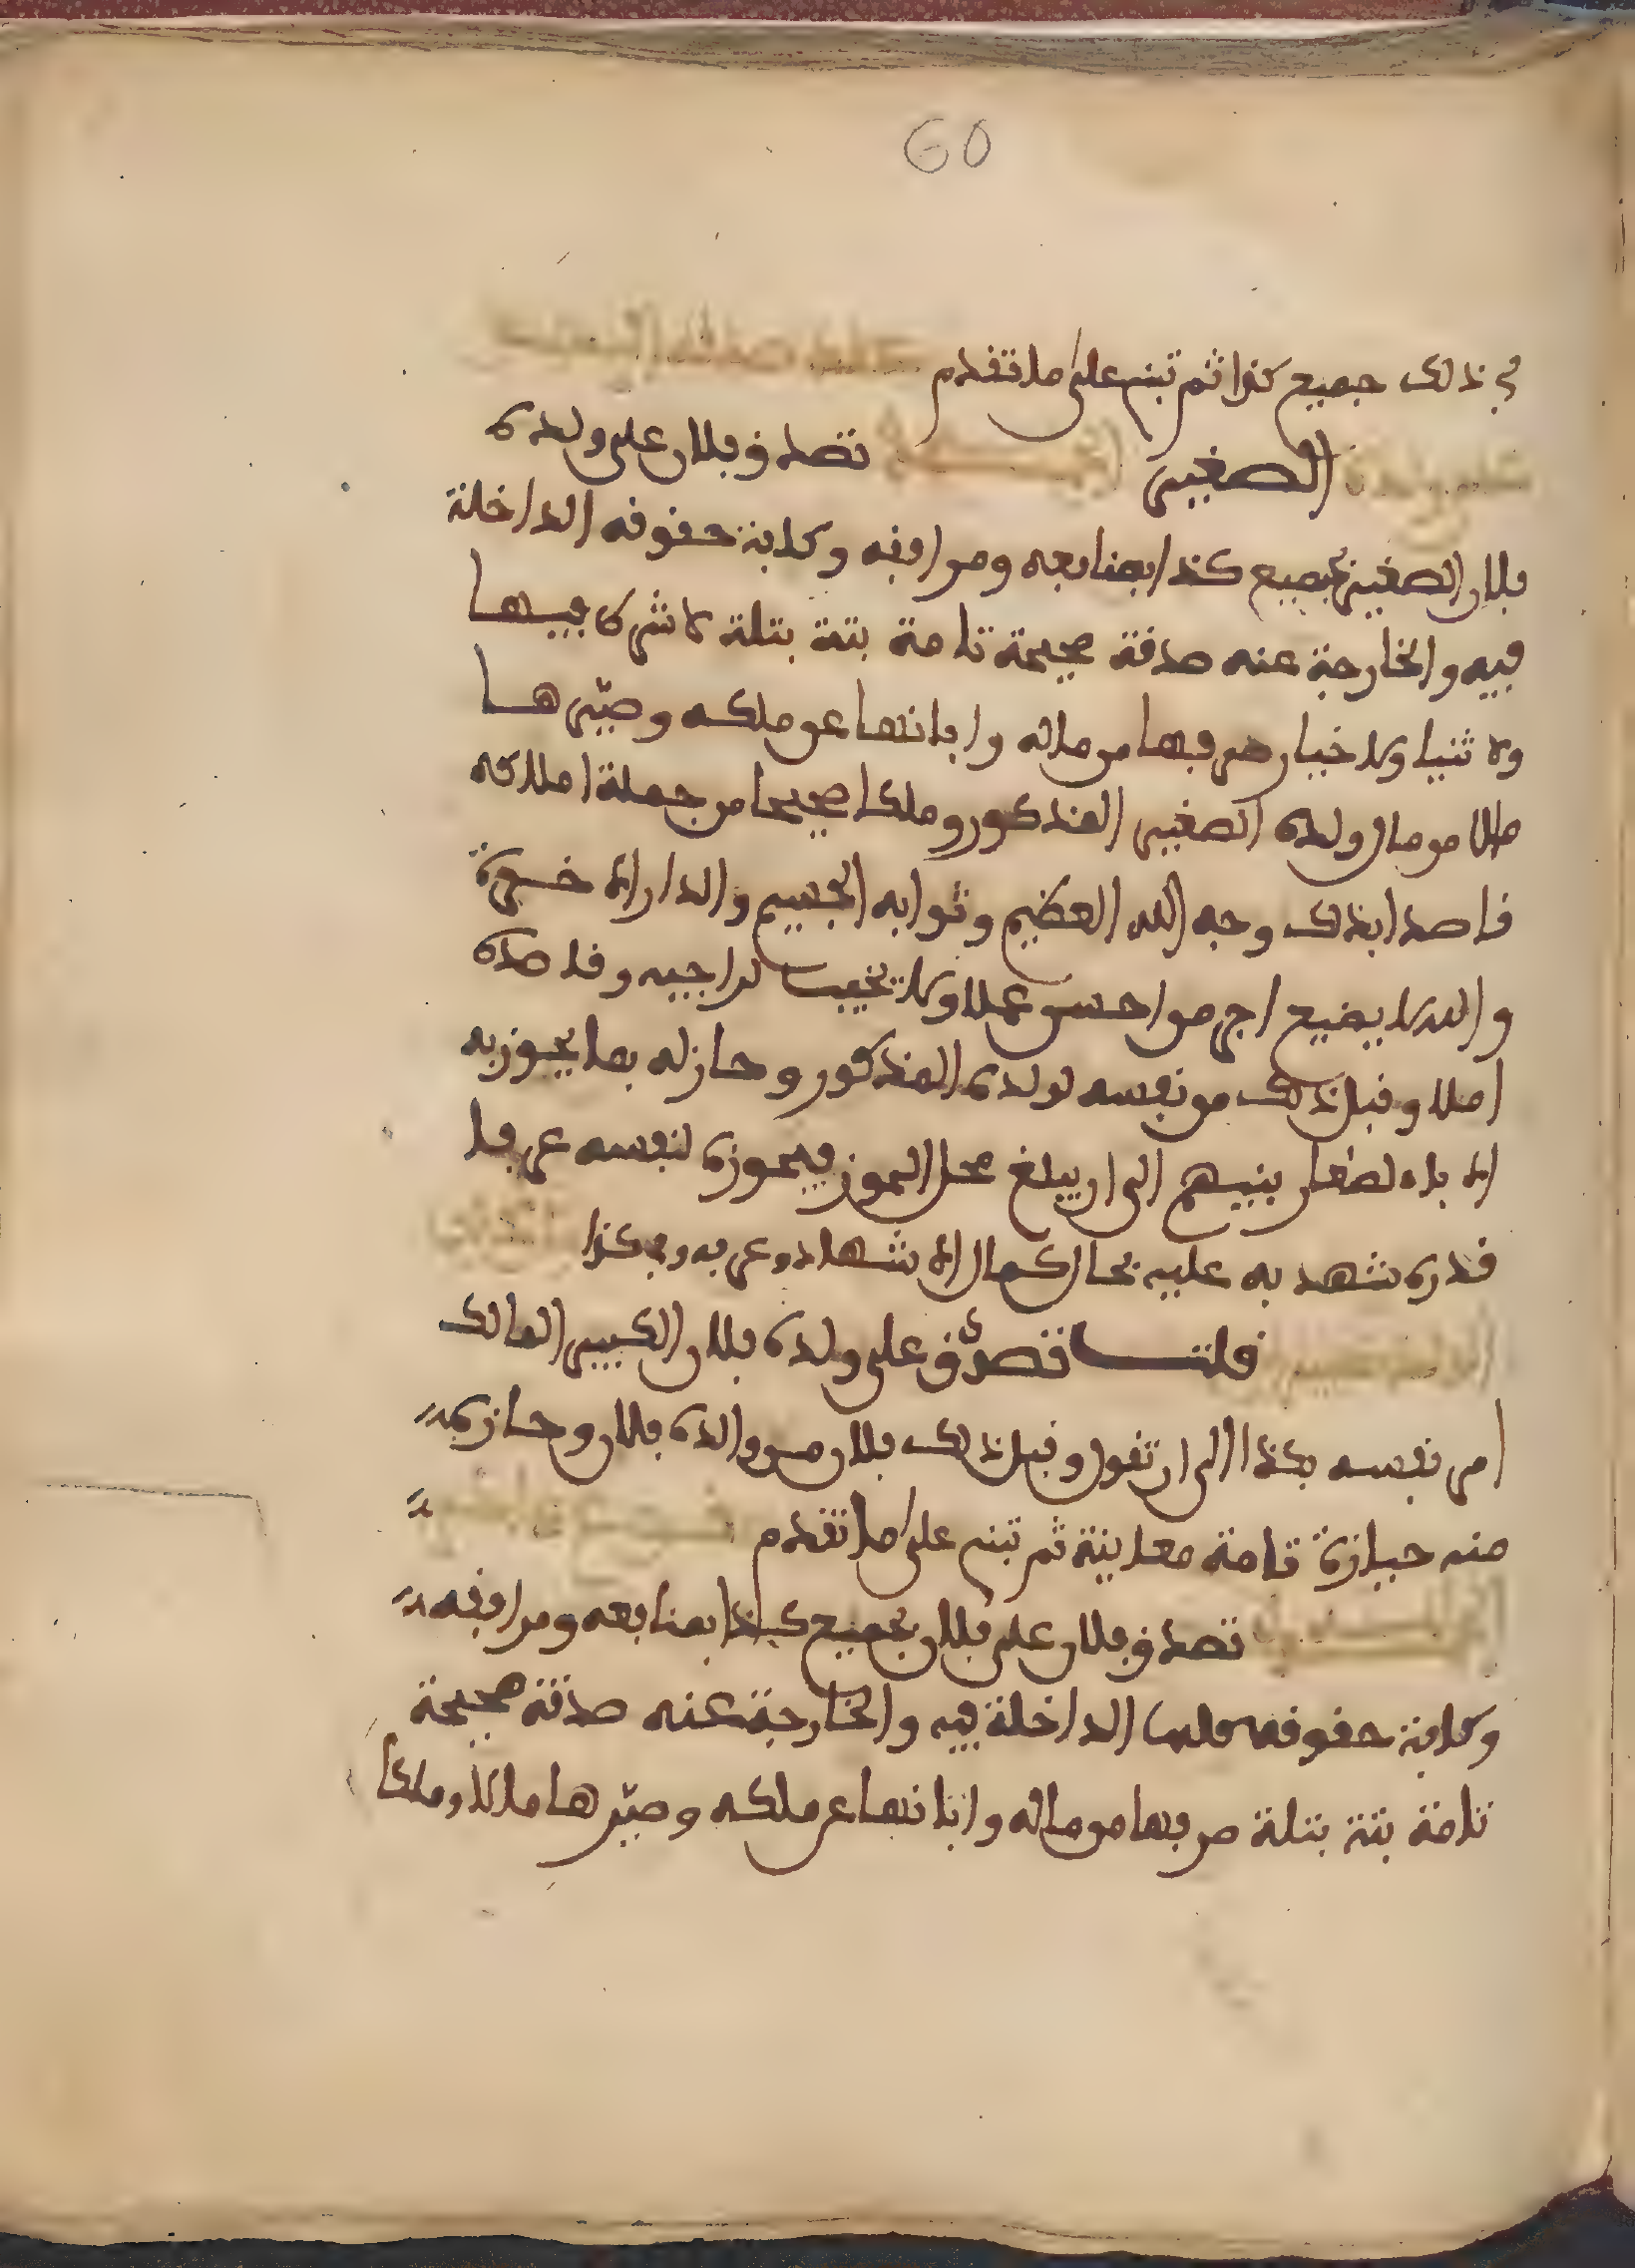 60
في ذلك جميع كذا ثم تبني على ما تقدم
الصغير تصدق فلان على ولده
فلان الصغير بجميع كذا بمنافعه ومرافقه وكافة حقوقه الداخلة
فيه والخارجة عنه صدقة صحيحة تامة بتة بتلة لا شرط فيها
ولا ثنيا ولا خيار صرفها من ماله وابانتها عن ملكه وصيرها
مالا من مال ولده الصغير المذكور وملكا صحيحا من جملة املاكه
قاصدا بذلك وجه الله العظيم وثوابه الجسيم والدار الاخرة
والله لا يضيع اجر من احسن عملا ولا يخيب لراجيه وقاصده
املا وقبل ذلك من نفسه لولده المذكور وحازله بما يحوز به
الاباء لصغار بنيهم الى ان يبلغ محل الحوز فيحوزه لنفسه عرفا
قدره شهد به عليه بحال كمال الاشهاد وعرفه وفي كذا
قلت تصدق على ولده فلان الكبير المالك
امر نفسه بكذا الى ان تقول وقبل ذلك فلان من والده فلان وحازه
منه حيازة تامة معاينة ثم تبني على ما تقدم
تصدق فلان على فلان بجميع كذا بمنافعه ومرافقه
وكافة حقوقه كلها الداخلة فيه والخارجة عنه صدقة صحيحة
تامة بتة بتلة صرفها من ماله وابانتها عن ملكه وصيرها مالا وملكا